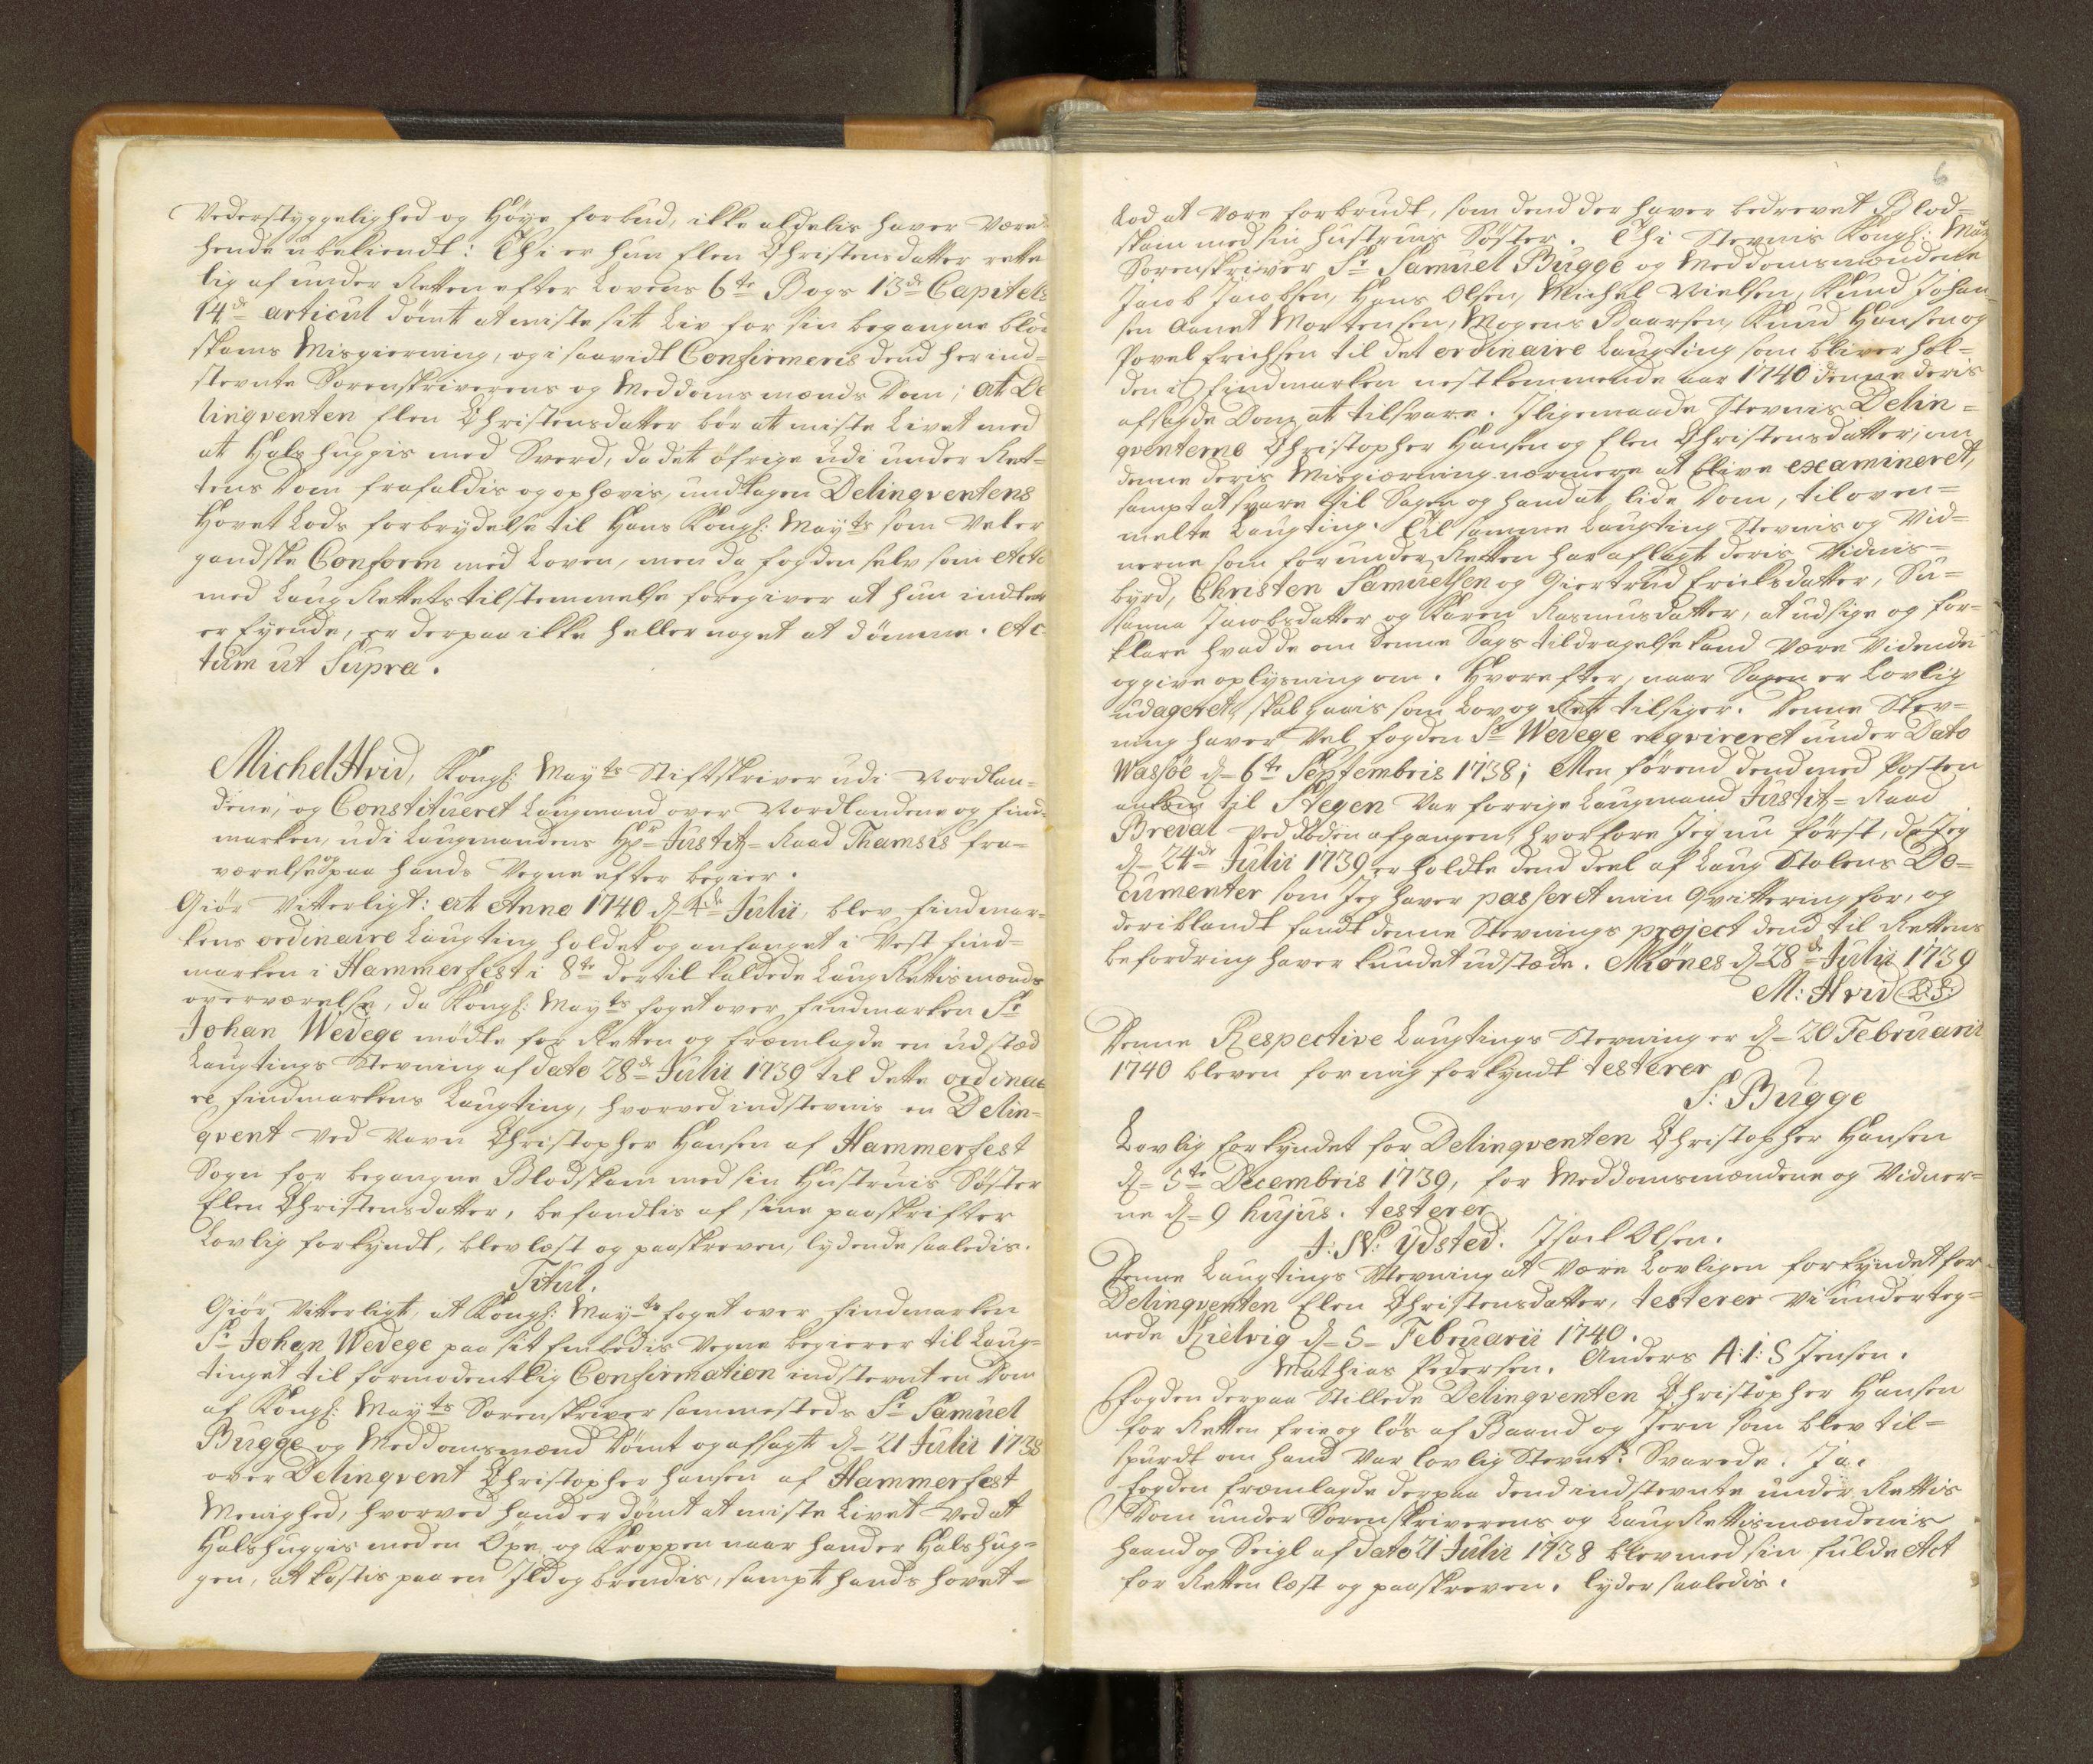 Vederstyggelighed og Høye forbud, ikke aldelis haver Været
hende ubekiendt: Thi er hun Elen Christensdatter rette-
lig af under Retten efter Lovens 6te Bogs 13de Capitels
14de articul dømt at miste sit Liv for sin begangne blod-
skams Misgierning, og i saavidt Confirmeris dend her ind-
stevnte Sorenskriverens og Meddoms mænds Dom; at De-
linqventen Elen Christensdatter bør at miste Livet med
at Halshuggis med Sverd, da det øfrige udi under Ret-
tens Dom frafaldis og ophævis, undtagen Delinqventens
Hovet Lods forbrydelse til Hans Kongl: Mayts som Vel er
gandske Conform med Loven, men da fogden selv som Actor
med Laug Rettets tilstemmelse foregiver at hun indtet
er Eyende, er derpaa ikke heller noget at dømme. Ac-
tum ut Supra.
Michel Hvid, Kongl: Mayts Stiftskriver udi Nordlan-
dene, og Constitueret Laugmand over Nordlandene og Find-
marken, udi Laugmandens Hr Justitz-Raad Thamsis fra-
værelse og paa hands Vegne efter begier.
Giør Vitterligt: at Anno 1740 d 4de Julii, blev Findmar-
kens ordinaire Laugting holdet og anfanget i Vest Find-
marken i Hammerfest i 8te dertil kaldede Laug Rettis mænds
overværelse, da Kongl: Mayts foget over Findmarken Sr
Johan Wedege mødte for Retten og fremlagde en udstæd
Laugtings Stevning af dato 28de Julii 1739 til dette ordinai-
re Findmarkens Laugting, hvorved indstevnis en Delin-
qvent ved Navn Christopher Hansen af Hammerfest
Sogn for begangne Blodskam med sin Hustruis Søster
Elen Christensdatter, befandtis af sine paaskrifter
Lovlig forkyndt, blev læst og paaskreven, lydende saaledis.
Titul.
Giør Vitterligt, at Kongl: Mayts foget over Findmarken
Sr Johan Wedege paa sit Embedis Vegne begierer til Laug-
tinget til formodentlig Confirmation indstevnt en Dom
af Kongl: Mayts Sorenskriver sammesteds Sr Samuel
Bugge og Meddomsmænd dømt og afsagt d 21 Julii 1738
over Delinqvent Christopher Hansen af Hammerfest
Menighed, hvorved hand er dømt at miste Livet ved at
Halshuggis med en Øxe og Kroppen naar hand er Halshug-
gen, at kastis paa en Ild og brendis, sampt hands hovet-
6
Lod at være forbrudt, som dend der haver bedrevet Blod-
skam med sin Hustruis Søster. Thi Stevnis Kongl: Mayts
Sorenskriver Sr Samuel Bugge og Meddomsmændene
Jacob Jacobsen, Hans Olsen, Michel Nielsen, Knud Johan-
sen Aanet Mortensen, Mogens Baarsen, Knud Hansen og
Povel Erichsen til det ordinaire Laugting som bliver hol-
den i Findmarken nestkommende aar 1740 denne deris
afsagde Dom at tilsvare. Iligemaade Stevnis Delin-
qventerne Christopher Hansen og Elen Christensdatter, om
denne deris Misgiærning nærmere at blive examineret,
sampt at svare til Sagen og hand at lide Dom, til oven-
melte Laugting. Til samme Laugting Stevnis og Vid-
nerne som for under Retten har aflagt deris Vidnis-
byrd, Christen Samuelsen og Giertrud Eriksdatter, Su-
sanna Jacobsdatter og Karen Rasmusdatter, at udsige og for-
klare hvad de om denne Sags tildragelse kand Være Vidende
og give oplysning om. Hvorefter, naar Sagen er Lovlig
udageret, skal gaais som Lov og Ret tilsiger. Denne Stev-
ning haver Vel fogden Sr Wedege reqvireret under Dato
Wassøe d 6te Septembris 1738; Men førend dend med Posten
ankom til Stegen Var forrige Laugmand Justitz-Raad
Breval ved døden afgangen, hvorfore Jeg nu først, da Jeg
d 24de Julii 1739 erholdte dend deel af Laug Stolens Do-
cumenter som Jeg haver passeret min Qvittering for, og
deriblandt fandt denne Stevnings project dend til Rettens
befordring haver kundet udstæde. Miønes d 28de Julii 1739
M: Hvid (L:S:)
Denne Respective Laugtings Stevning er d 20 Februarii
1740 bleven for mig forkyndt testerer
S: Bugge
Lovlig forkyndet for Delinqventen Christopher Hansen
d 5te Decembris 1739, for Meddomsmændene og Vidner-
ne d 9 hujus. testerer
J: N: Ydsted. Isach Olsen.
Denne Laugtings Stevning at Være Lovligen forkyndet for
Delinqventen Elen Christensdatter, testerer Vi underteg-
nede Kielvig d 5 Februarii 1740.
Mathias Pedersen. Anders A:I:S Jensen.
Fogden derpaa Stillede Delinqventen Christopher Hansen
for Retten frie og løs af Baand og Jern som blev til-
spurdt om hand Var lovlig Stevnt? Svarede. Ja.
Fogden fremlagde derpaa dend indstevnte under Rettis
Dom under Sorenskriverens og Laug Rettismændenis
Haand og Seigl af dato 21 Julii 1738 blev med sin fulde Act
for Retten læst og paaskreven. lyder saaledis.